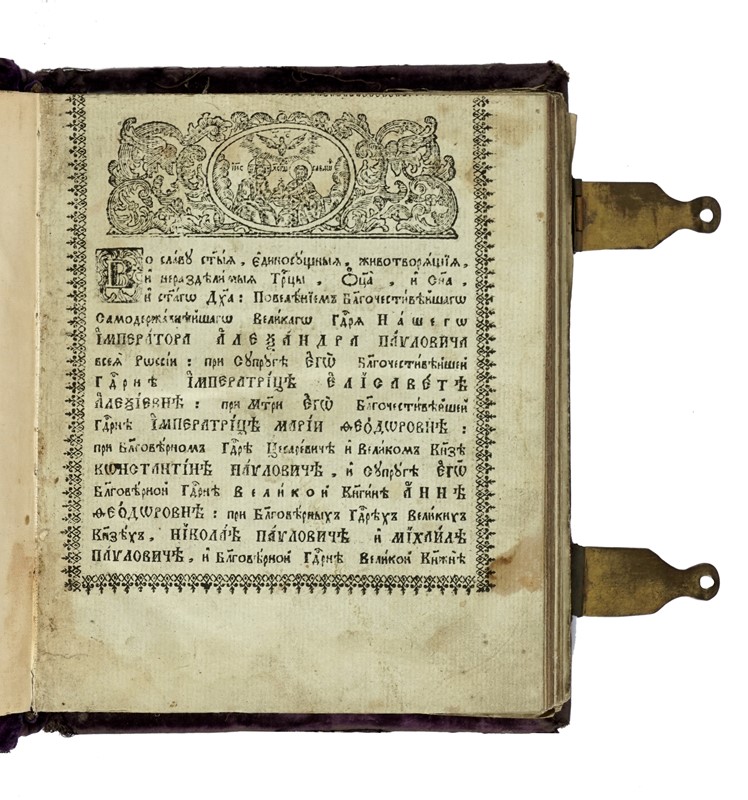 Во славу ст҃ыѧ, є҆диносꙋщныѧ, животворѧщїѧ,
и҆ нераздѣлимыѧ Трⷪ҇цы, Ѻ҆ц҃а, и҆ Сн҃а,
и҆ ст҃агѡ Дх҃а: Повелѣнїемъ Бл҃гочестивѣйшагѡ
Самодержавнѣйшагѡ Великагѡ Гдⷭ҇рѧ Нашегѡ
І҆МПЕРАТОРА А҆ЛЕѮАНДРА ПАѴЛОВИЧА
всеѧ̀ Рѡссіи: при Сꙋпрꙋгѣ Є҆гѡ̀ Бл҃гочестивѣйшей
Гдⷭ҇рнѣ І҆МПЕРАТРИЦѢ Е҆ЛІСАВЕ́ТѢ
А҆ЛЕѮІЕВНѢ: при Мт҃ри Є҆гѡ̀ Бл҃гочестивѣйшей
Гдⷭ҇рнѣ І҆МПЕРАТРИЦѢ МАРІИ ѲЕО́ДѠРОВНѢ:
при Бл҃говѣрномъ Гдⷭ҇рѣ Цесаревичѣ и҆ Великомъ Кнз҃ѣ
КѠНСТАНТІ́НѢ ПАѴЛОВИЧѢ, и҆ Сꙋпрꙋгѣ Є҆гѡ̀
Бл҃говѣрной Гдⷭ҇рнѣ Великой Кнг҃инѣ А҆́ННѢ
ѲЕО́ДѠРОВНѢ: при Бл҃говѣрныхъ Гдⷭ҇рѣхъ Великихъ
Кнз҃ѣхъ, НІКОЛАѢ ПАѴЛОВИЧѢ и҆ МІХАИЛѢ
ПАѴЛОВИЧѢ, и҆ Бл҃говѣрной Гдⷭ҇рнѣ Великой Кнж҃нѣ